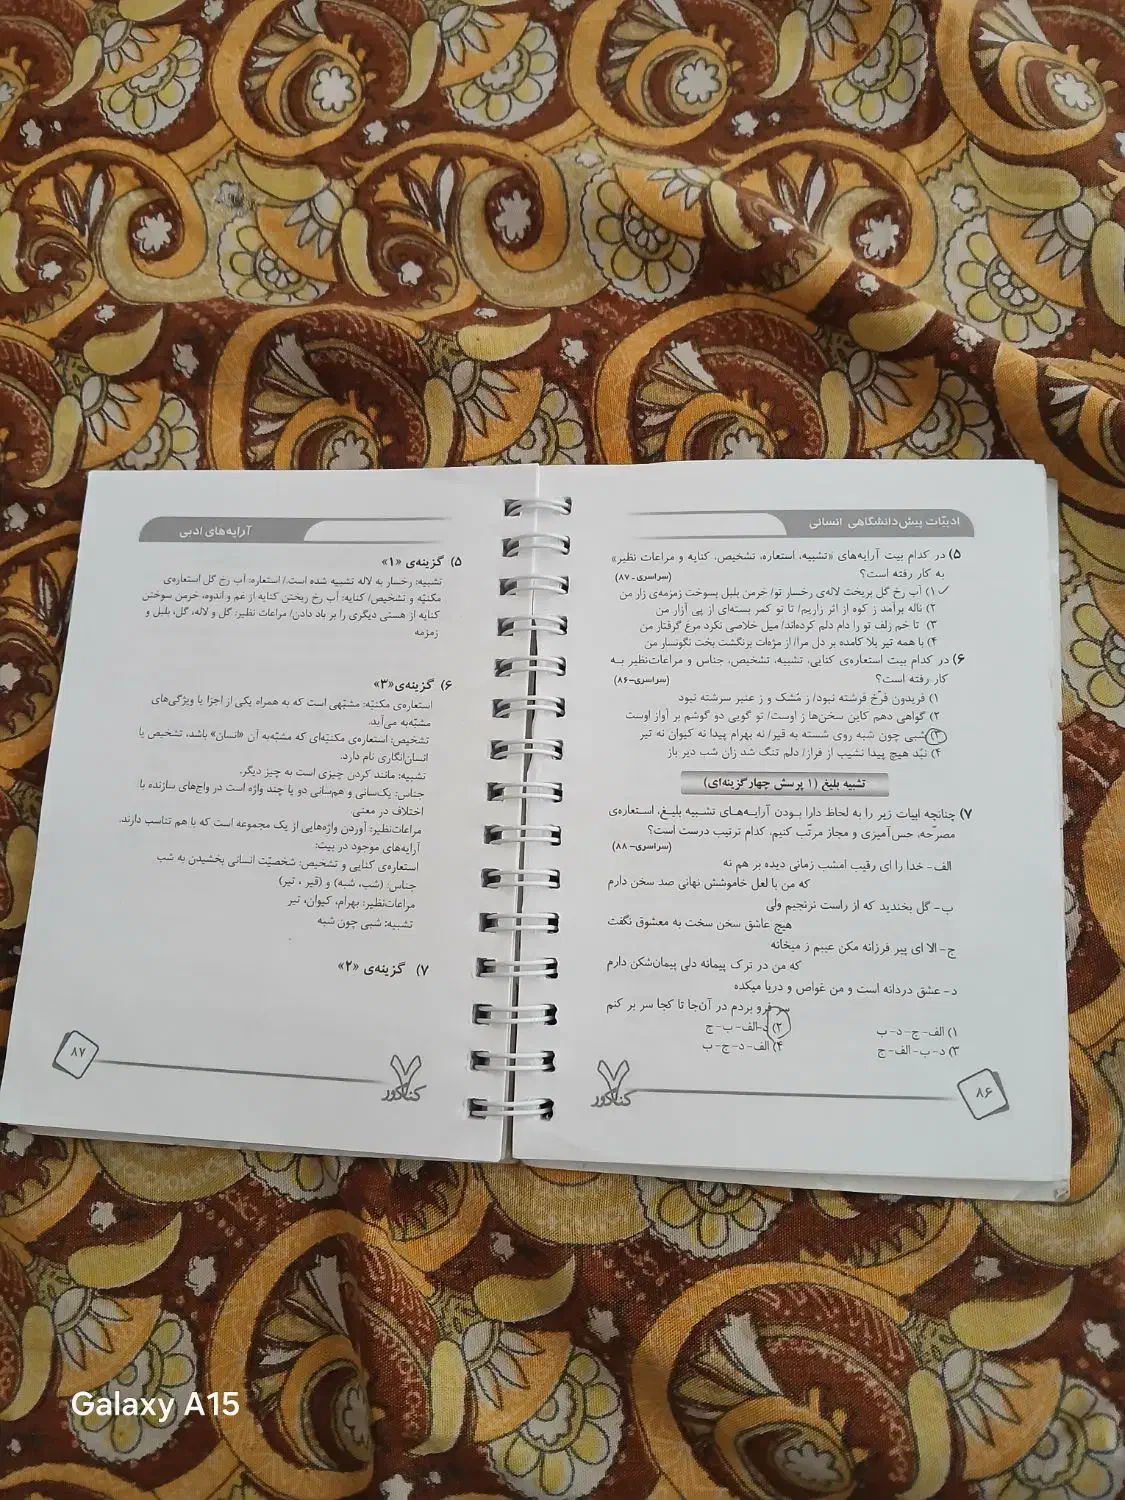 ادبیّات پیش‌دانشگاهی انسانی
۵) در کدام بیت آرایه‌های «تشبیه، استعاره، تشخیص، کنایه و مراعات نظیر»
به کار رفته است؟ (سراسری-۸۷)
۱) آب رخ گل بریخت لاله‌ی رخسار تو/ خرمن بلبل بسوخت زمزمه‌ی زار من
۲) ناله برآمد ز کوه از اثر زاریم/ تا تو کمر بسته‌ای از پی آزار من
۳) تا خم زلف تو را دام دلم کرده‌اند/ میل خلاصی نکرد مرغ گرفتار من
۴) با همه تیر بلا کامده بر دل مرا/ از مژه‌ات برنگشت بخت نگونسار من
۶) در کدام بیت استعاره‌ی کنایی، تشبیه، تشخیص، جناس و مراعات‌نظیر به
کار رفته است؟ (سراسری-۸۶)
۱) فریدون فرّخ فرشته نبود/ ز مُشک و ز عنبر سرشته نبود
۲) گواهی دهم کاین سخن‌ها ز اوست/ تو گویی دو گوشم بر آواز اوست
۳) شبی چون شبه روی شسته به قیر/ نه بهرام پیدا نه کیوان نه تیر
۴) نبُد هیچ پیدا نشیب از فراز/ دلم تنگ شد زان شب دیر باز
تشبیه بلیغ (۱ پرسش چهارگزینه‌ای)
۷) چنانچه ابیات زیر را به لحاظ دارا بودن آرایه‌های تشبیه بلیغ، استعاره‌ی
مصرّحه، حس‌آمیزی و مجاز مرتّب کنیم، کدام ترتیب درست است؟
(سراسری-۸۸)
الف- خدا را ای رقیب امشب زمانی دیده بر هم نه
که من با لعل خاموشش نهانی صد سخن دارم
ب- گل بخندید که از راست نرنجیم ولی
هیچ عاشق سخن سخت به معشوق نگفت
ج- الا ای پیر فرزانه مکن عیبم ز میخانه
که من در ترک پیمانه دلی پیمان‌شکن دارم
د- عشق دردانه است و من غواص و دریا میکده
سر فرو بردم در آن‌جا تا کجا سر بر کنم
۱) الف- ج- د- ب ۲) د-الف- ب- ج
۳) د- ب- الف- ج ۴) الف- د- ج- ب
۷
کنکور
۸۶
آرایه‌های ادبی
۵) گزینه‌ی «۱»
تشبیه: رخسار به لاله تشبیه شده است./ استعاره: آب رخ گل استعاره‌ی
مکنیّه و تشخیص/ کنایه: آب رخ ریختن کنایه از غم و اندوه، خرمن سوختن
کنایه از هستی دیگری را بر باد دادن/ مراعات نظیر: گل و لاله، گل، بلبل و
زمزمه
۶) گزینه‌ی«۳»
استعاره‌ی مکنیّه: مشبّهی است که به همراه یکی از اجزا یا ویژگی‌های
مشبّه‌به می‌آید.
تشخیص: استعاره‌ی مکنیّه‌ای که مشبّه‌به آن «انسان» باشد، تشخیص یا
انسان‌انگاری نام دارد.
تشبیه: مانند کردن چیزی است به چیز دیگر.
جناس: یک‌سانی و هم‌سانی دو یا چند واژه است در واج‌های سازنده با
اختلاف در معنی
مراعات‌نظیر: آوردن واژه‌هایی از یک مجموعه است که با هم تناسب دارند.
آرایه‌های موجود در بیت:
استعاره‌ی کنایی و تشخیص: شخصیّت انسانی بخشیدن به شب
جناس: (شب، شبه) و (قیر ، تیر)
مراعات‌نظیر: بهرام، کیوان، تیر
تشبیه: شبی چون شبه
۷) گزینه‌ی «۲»
۷
کنکور
۸۷
Galaxy A15